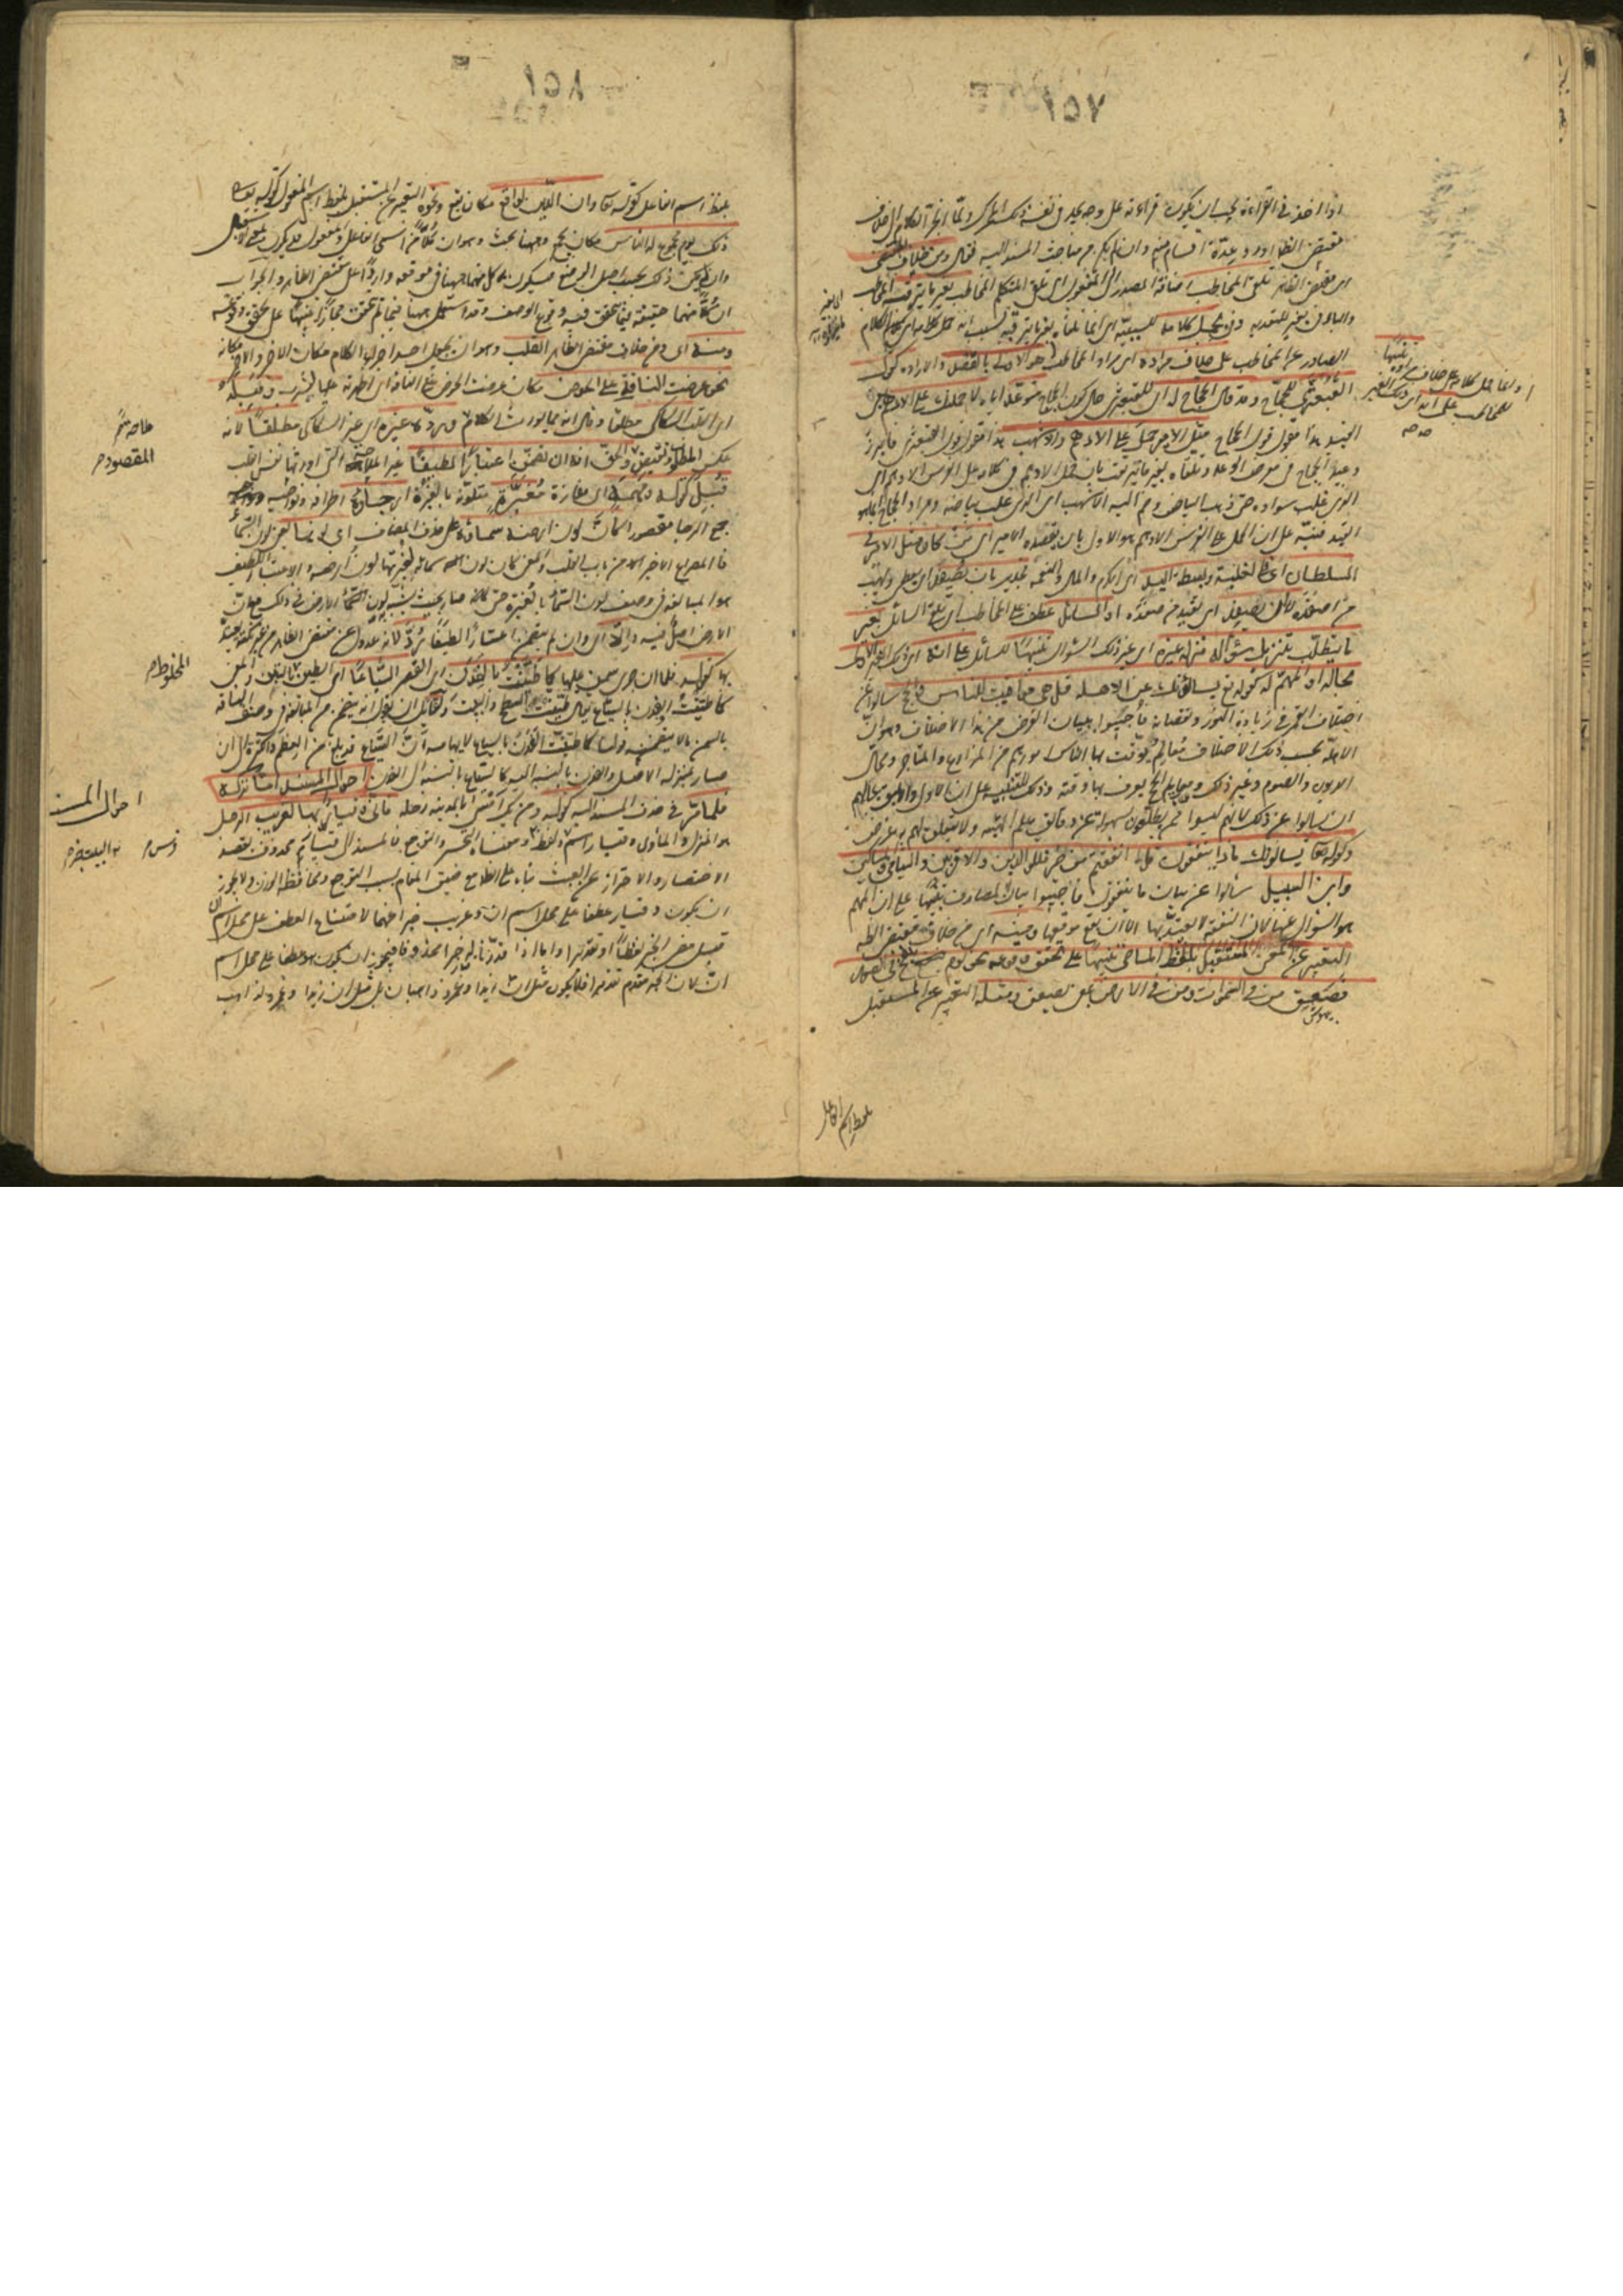 اذا اخذ في القراءة يجب ان يكون قراءته على وجه يجد في نفسه ذلك المحرك ولما انجر الكلام الى خلاف
مقتضى الظاهر اورد عدة اقسام منه وان لم يكن من مباحث المسند اليه فقال ومن خلاف المقتضى
اى مقتضى الظاهر تلقى المخاطب اضافة المصدر الى المفعول اى تلقى المتكلم المخاطب بغير ما يترقبه المخاطب
والباء في بغير للتعدية وفى بحمل كلامه للسببية اى انما تلقاه بغير ما يترقبه بسبب انه حمل كلامه اى الكلام
الصادر عن المخاطب على خلاف مراده اى مراد المخاطب هو الاولى بالقصد والارادة كقول
القبعثرى للحجاج وقد قال الحجاج له اى للقبعثرى حال كون الحجاج متوعدا اياه لاحملنك على الادهم يعنى
القيد هذا مقول قول الحجاج مثل الامير حمل على الادهم والاشهب هذا مقول قول القبعثرى فابرز
وعيد الحجاج فى معرض الوعد وتلقاه بغير ما يترقب بان حمل الادهم فى كلامه على الفرس الادهم اى
الذى غلب سواده حتى ذهب البياض وضم اليه الاشهب اى الذى غلب بياضه ومراد الحجاج انما هو
القيد فنبه على ان الحمل على الفرس الادهم هو الاولى بان يقصده الامير اى من كان مثل الامير فى
السلطان اى الغلبة وبسطة اليد اى الكرم والمال والنعمة فجدير بان يصفد اى يعطى ويهب
من اصفده لا ان يصفد اى يقيد من صفده او السائل عطف على المخاطب اى تلقى السائل بغير
ما يتطلب بتنزيل سؤاله منزلة غيره اى غير ذلك السؤال تنبيها للسائل على انه اى ذلك الغير الاولى
بحاله او المهم له كقوله تع يسألونك عن الاهلة قل هى مواقيت للناس والحج سالوا عن
اختلاف القمر فى زيادة النور ونقصانه فاجيبوا ببيان الغرض من هذا الاختلاف وهو ان
الاهلة بحسب ذلك الاختلاف معالم يوقت بها الناس امورهم من المزارع والمتاجر ومحال
الديون والصوم وغير ذلك ومعالم للحج يعرف بها وقته وذلك للتنبيه على ان الاولى والاليق بحالهم
ان يسالوا عن ذلك لانهم ليسوا ممن يطلعون بسهولة على دقائق علم الهيئة ولا يتعلق لهم به غرض
وكقوله تعا يسالونك ماذا ينفقون قل ما انفقتم من خير فللوالدين والاقربين واليتامى والمساكين
وابن السبيل سألوا عن بيان ما ينفقون فاجيبوا ببيان المصارف تنبيها على ان المهم
هو السؤال عنها لان النفقة لا يعتد بها الا ان تقع موقعها ومنه اى من خلاف مقتضى الظاهر
التعبير عن المعنى المستقبل بلفظ الماضى تنبيها على تحقق وقوعه نحو ويوم ينفخ فى الصور
فصعق من فى السموات ومن فى الارض بمعنى يصعق ومثله التعبير عن المستقبل
بلفظ اسم الفاعل
بلفظ اسم الفاعل كقوله تعا وان الدين لواقع مكان يقع ونحوه التعبير عن المستقبل بلفظ اسم المفعول كقوله تعا
ذلك يوم مجموع له الناس مكان يجمع وههنا بحث وهو ان كلا من اسمى الفاعل والمفعول قد يكون بمعنى الاستقبال
وان لم يكن ذلك بحسب اصل الوضع فيكون كل منهما ههنا فى موقعه واردا على مقتضى الظاهر والجواب
ان كلا منهما حقيقة فيما تحقق فيه وقوع الوصف وقد استعمل ههنا فيما لم يتحقق مجازا تنبيها على تحقق وقوعه
ومنه اى ومن خلاف مقتضى الظاهر القلب وهو ان يجعل احد اجزاء الكلام مكان الاخر والاخر مكانه
نحو عرضت الناقة على الحوض مكان عرضت الحوض على الناقة اى اظهرته عليها لتشرب وقبله
اى القلب السكاكى مطلقا وقال انه مما يورث الكلام ملاحة ورده غيره اى غير السكاكى مطلقا لانه
عكس المطلوب ونقيض المقصود والحق انه ان تضمن اعتبارا لطيفا غير الملاحة التى اورثها نفس القلب
قبل كقوله ومهمه اى مفازة مغبرة متلونة بالغبرة ارجاؤه اى اطرافه ونواحيه
جمع الرجا مقصورا كأن لون ارضه سماؤه على حذف المضاف اى لونها يعنى لون السماء
فالمصراع الاخير من باب القلب والمعنى كان لون سمائه لغبرتها لون ارضه والاعتبار اللطيف
هو المبالغة فى وصف لون السماء بالغبرة حتى كانه صار بحيث يشبه به لون الارض فى ذلك مع ان
الارض اصل فيه والا اى وان لم يتضمن اعتبارا لطيفا رد لانه عدول عن مقتضى الظاهر من غير نكتة يعتد
بها كقوله فلما ان جرى سمن عليها كما طينت بالفدن اى القصر السياعا اى الطين بالتبن والمعنى
كما طينت الفدن بالسياع يقال طينت السطح والبيت ولقائل ان يقول انه يتضمن من المبالغة فى وصف الناقة
بالسمن ما لا يتضمنه قولنا كما طينت الفدن بالسياع لايهامه ان السياع قد بلغ من العظم والكثرة الى ان
صار بمنزلة الاصل والفدن بالنسبة اليه كالسياع بالنسبة الى الفدن احوال المسند اما تركه
فلما مر فى حذف المسند اليه كقوله ومن يك امسى بالمدينة رحله فانى وقيار بها لغريب الرحل
هو المنزل والمأوى وقيار اسم ولفظ ومعناه التحسر والتوجع فالمسند الى قيار محذوف لقصد
الاختصار والاحتراز عن العبث بناء على الظاهر مع ضيق المقام بسبب التوجع ومحافظة الوزن ولا يجوز
ان يكون وقيار عطفا على محل اسم ان وغريب خبرا عنهما لامتناع العطف على محل اسم ان
قبل مضى الخبر لفظا او تقديرا واما اذا قدرنا له خبرا محذوفا فيجوز ان يكون هو عطفا على محل اسم
ان لان الخبر مقدم تقديرا فلا يكون مثل ان زيدا وعمرو ذاهبان بل مثل ان زيدا وعمرو لذاهب
المقصود
المخلوط
احوال المسند